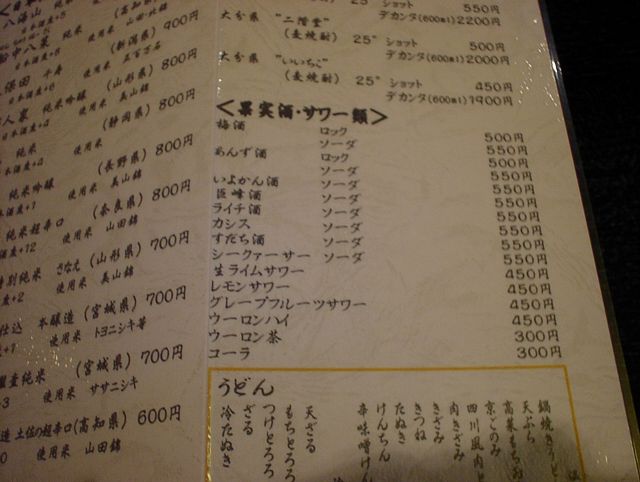 八海山
(高知県)
900円
日本酒度+5 使用米 山田・北錦
八菜 純米
(新潟県) 800円
日本酒度+5 使用米 五百万石
千寿
(山形県) 800円
日本酒度+6 使用米 美山錦
純米吟醸
(静岡県) 800円
日本酒度+4 使用米
純米
(長野県) 800円
使用米 美山錦
純米吟醸
(奈良県) 800円
使用米 山田錦
純米超辛口
+12
(山形県) 700円
特別純米 さなえ
使用米 美山錦
(宮城県) 700円
仕込 本醸造
使用米 トヨニシキ等
(宮城県) 700円
純米
使用米 ササニシキ
土佐の超辛口(高知県) 600円
使用米 山田錦
ショット 550円
大分県 "二階堂" デカンタ(600ml)2200円
(麦焼酎) 25° ショット 500円
デカンタ(600ml)2000円
大分県 "いいちこ"
(麦焼酎) 25° ショット 450円
デカンタ(600ml)1900円
<果実酒・サワー類>
梅酒 ロック 500円
ソーダ 550円
あんず酒 ロック 500円
ソーダ 550円
いよかん酒 ソーダ 550円
巨峰酒 ソーダ 550円
ライチ酒 ソーダ 550円
カシス ソーダ 550円
すだち酒 ソーダ 550円
シークァーサー ソーダ 550円
生ライムサワー 450円
レモンサワー 450円
グレープフルーツサワー 450円
ウーロンハイ 450円
ウーロン茶 300円
コーラ 300円
うどん
鍋焼きうど
天ぷら
高菜もち
京ごのみ
四川風肉
肉きざみ
きざみ
きつね
たぬき
けんちん
辛味噌けん
天ざる
もちとろろ
つけとろろ
ざる
冷たぬき